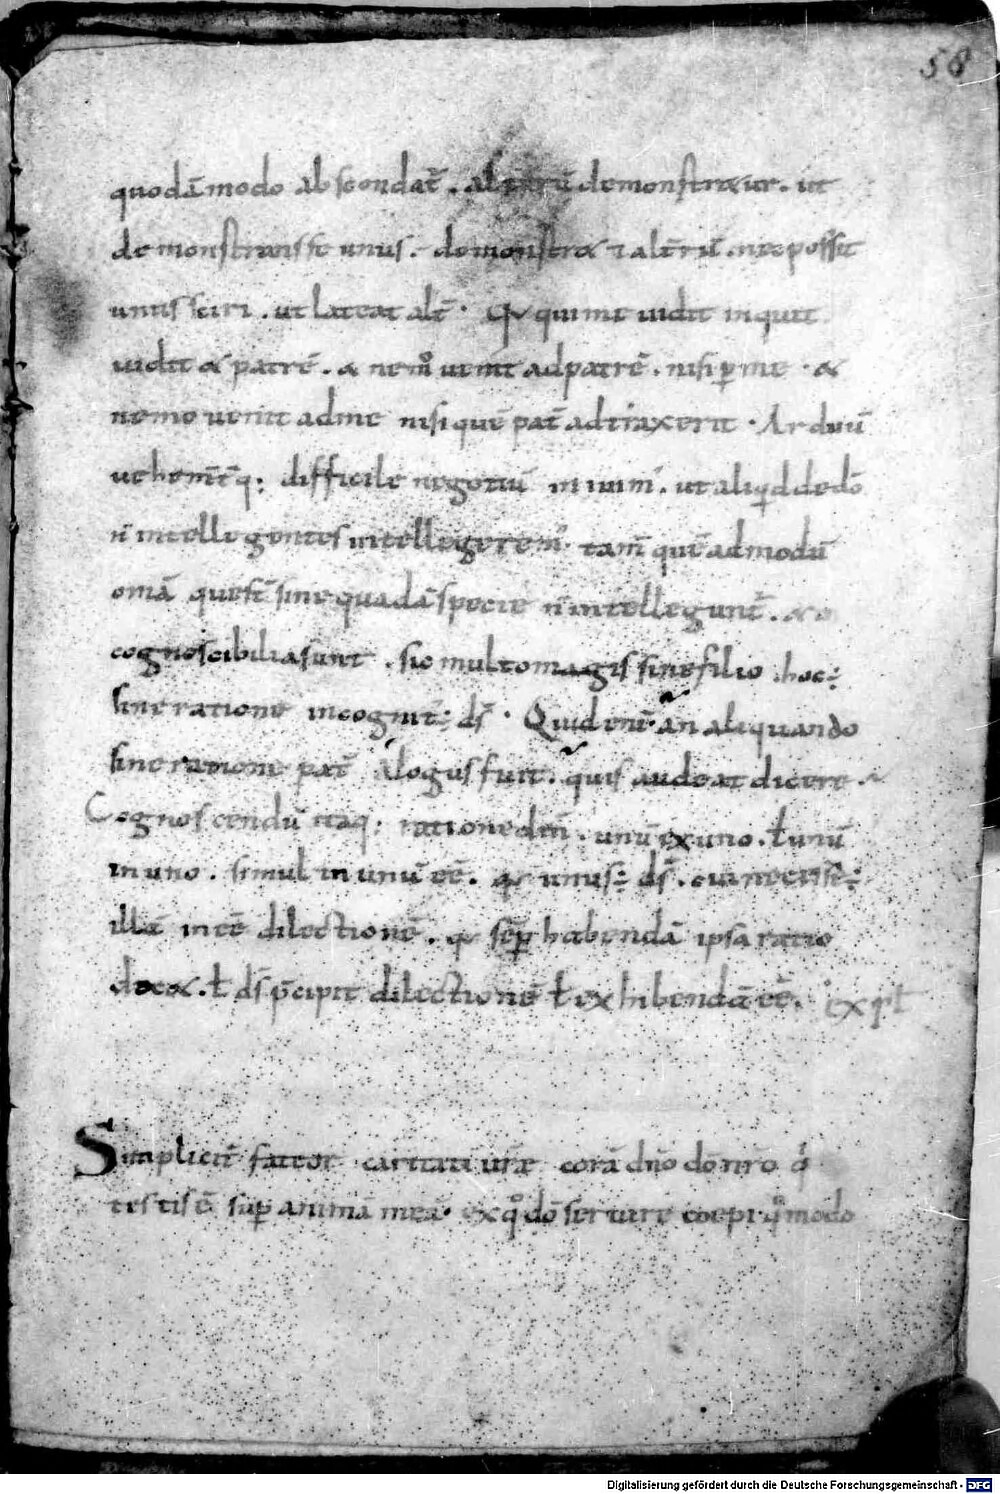 58
quodā modo abscondat̄. alterū demonstraxur. ut
demonstrausse unus. demonstrꝫ ⁊ alterū. nec posset
unus sciri. ut lateat alt̄. Qui me uidit inquit
uidit & patrē. & nemo uenit ad patrē. nisi p̄ me. &
nemo uenit ad me nisi quē pat̄ adtraxerit. Arduū
uehem̄tq: difficile negotiū inium̄. ut aliqid de dō
n̄ intellegentes intellegerem̄. tam̄ quē admodū
omā quesī sine quadā specie n̄ intellegunt̄.
cognoscibilia sunt. sic multo magis sine filio hoc:
sine ratione incognit: dš. Quid enī. an aliquando
sine ratione pat̄ Alogus fuit. quis audeat dicere
Cognoscendū itaq: ratione dnī. unū ex uno. ƚ unū
in uno. simul in unū eē. unus: dš. cui necesse:
illā in eē dilectionē. sēp habendā ipsa ratio
docꝫ. ƚ dš p̄cipit dilectionē ƚ exhibendā eē. expƚ
Simplicit̄ fateor caritati uræ corā dño dō nr̄o q
testis ē sup animā meā. ex qͦ dō seruire coepi qͦmodo
Digitalisierung gefördert durch die Deutsche Forschungsgemeinschaft - DFG